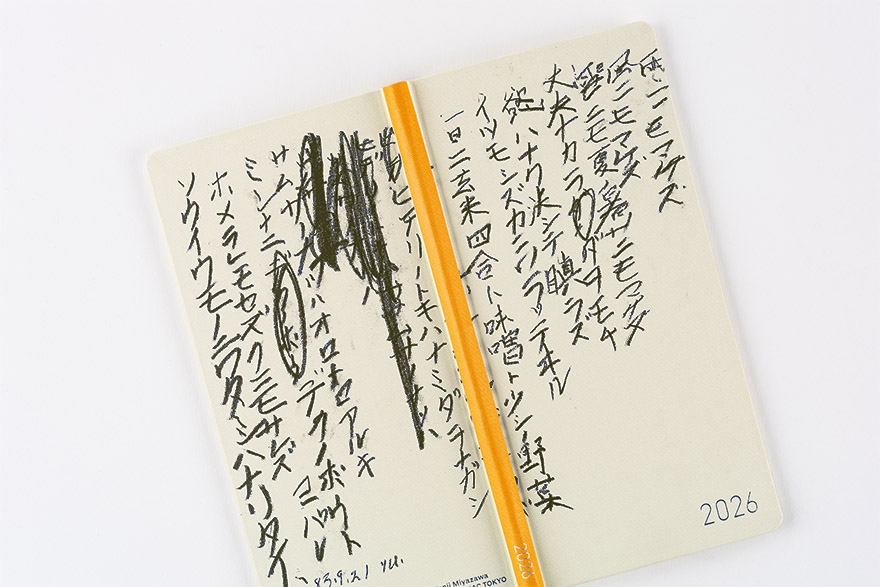 雨ニモマケズ
風ニモマケズ
雪ニモ夏ノ暑サニモマケズ
丈夫ナカラダヲモチ
慾ハナク決シテ瞋ラズ
イツモシズカニワラッテイル
一日ニ玄米四合ト味噌ト少シノ野菜
ヒデリノトキハナミダヲナガシ
サムサノナツハオロオロアルキ
ミンナニデクノボウトヨバレ
ホメラレモセズクニモサレズ
ソウイウモノニワタシハナリタイ
'83.9.21 Y.U.
2026
2026
Miyazawa
TOKYO